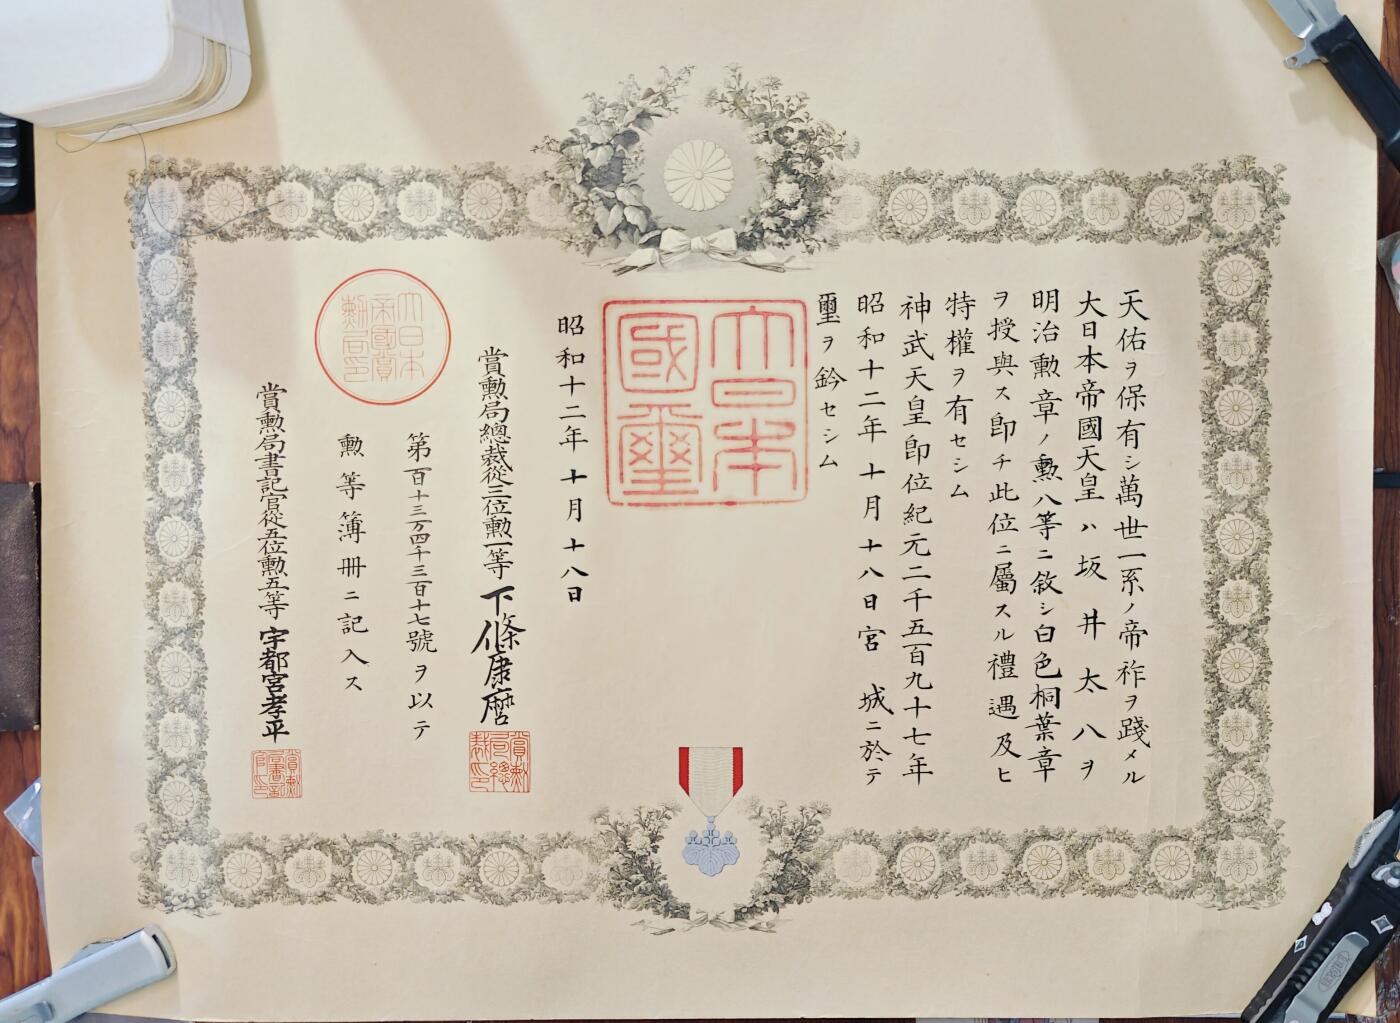 天佑ヲ保有シ萬世一系ノ帝祚ヲ踐メル
大日本帝國天皇ハ坂井太八ヲ
明治勲章ノ勲八等ニ敘シ白色桐葉章
ヲ授與ス即チ此位ニ屬スル禮遇及ヒ
特權ヲ有セシム
神武天皇即位紀元二千五百九十七年
昭和十二年十月十八日宮城ニ於テ
璽ヲ鈐セシム
大日本國璽
昭和十二年十月十八日
賞勲局總裁從三位勲一等下條康麿
賞勲局總裁之印
第百十三万四千三百十七號ヲ以テ
勲等簿冊ニ記入ス
大日本帝國賞勲局印
賞勲局書記官從五位勲五等宇都宮孝平